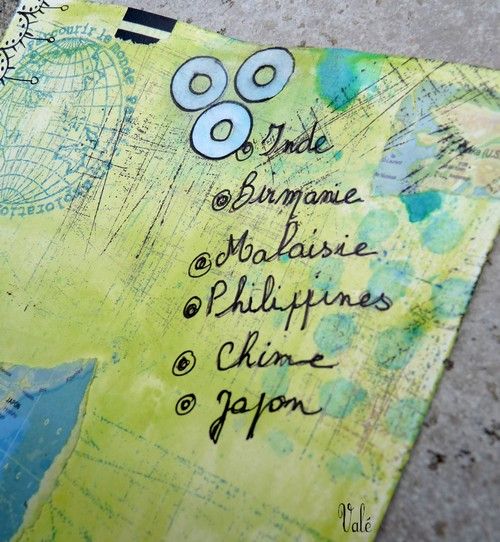 Parcourir le monde
Exploration
Inde
Birmanie
Malaisie
Philippines
Chine
Japon
Valé